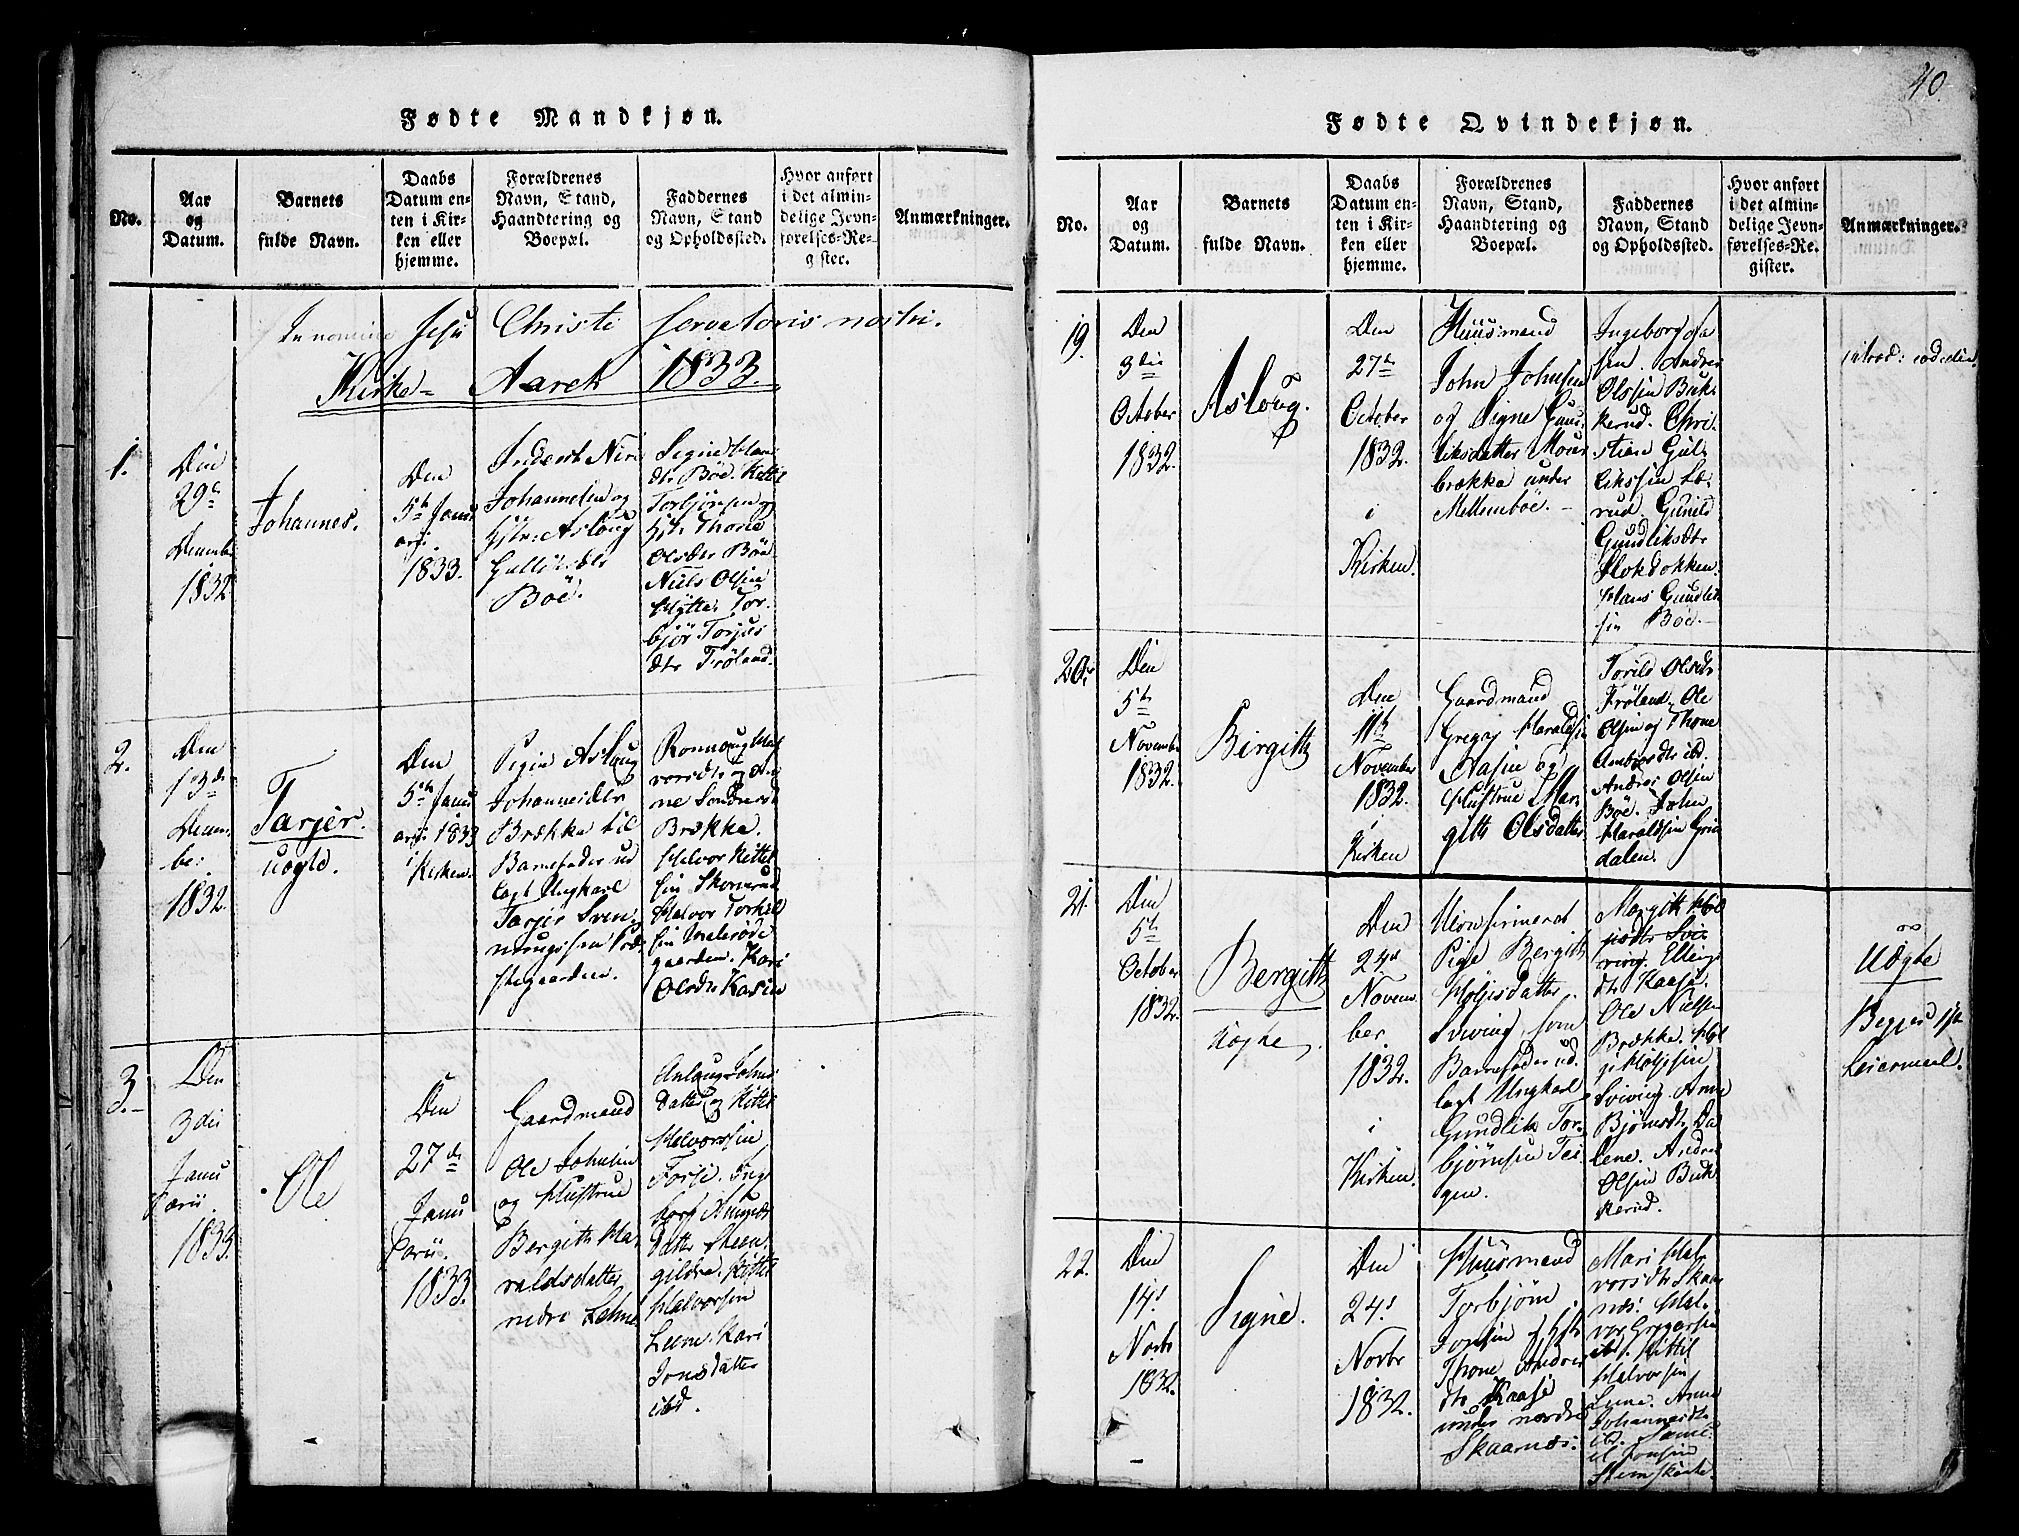 Fødte Mandkjøn.
No.
Aar
og
Datum.
Barnets
fulde Navn.
Daabs
Datum en-
ten i Kir-
ken eller
hjemme.
Forældrenes
Navn, Stand,
Haandtering og
Boepæl.
Faddernes
Navn, Stand
og Opholdssted.
Hvor anført
i det almin-
delige Jevn-
førelses-Re-
gister.
Anmærkninger.
In nomine Jesu Christi servatoris nostri.
Kirke- Aaret 1833.
1.
Den
29e
Decembr
1832
Johannes.
Den
5th Janu
arji
1833.
Johannesen og
Hstr: Asloug
Böe.
Signe Han
dtr Böe. Kittil
Torbjörnsen og
Hstr Thone
Olsdtr Böe
Niils Olsen
Hÿtte. Tor-
björ Torjus
dtr Fröland.
2.
Den
13de
Decem-
be:
1832.
Tarjer.
uægte.
Den
5th Janu
arji 1833
i
Kirken.
Pigen Asloug
Johannesdtr
Brækka til
Barnefader ud
lagt Ungkarl
Tarjer Sven-
nungssen Præ-
stegaarden.
Ronnoug Hal
vorsdtr og An
ne
Brækka.
Halvor Kittel
sen
Halvor Torkel
sen
gaarden. Kari
Olsdtr Kasin
3.
Den
3die
Janu
arii
1833.
Ole
Den
27de
Janu
arii.
1833.
Gaardmand
Ole Johnsen
og Hustrue
Bergith Ha-
raldsdatter
nedre Lehne
Aslaug Johns
datter og Kittel
Halvorssen
Forse. Inge
borg Amunds
datter Steen
gildra. Kittel
Halvorsen
Leene. Kari
Jonsdatter
ibd.
40.
Fødte Qvindekjøn.
No.
Aar
og
Datum.
Barnets
fulde Navn.
Daabs
Datum en-
ten i Kir-
ken eller
hjemme.
Forældrenes
Navn, Stand,
Haandtering og
Boepæl.
Faddernes
Navn, Stand
og Opholdssted.
Hvor anført
i det almin-
delige Jevn-
førelses-Re-
gister.
Anmærkninger.
19.
Den
3die
October
1832.
Asloug.
Den
27de
October
1832.
i
Kirken.
Huusmand
John Johnsen
og Signe Gund
liksdatter Mour
brække under
Mellembøe.
Ingeborg
sen. Andres
Olsen Buk-
kerud. Chri-
stien Gul-
liksen Le-
rud. Gunild
Gundliksdtr
Flokdokken.
Hans Gundlik
sen Böe.
20.
Den
5th
Novembr
1832.
Birgitt
Den
11th
November
1832.
i
Kirken
Gaardmand
Gregar Haraldsen
Nasin og
Hustrue Mar-
gith Olsdatter
Torild Olsdtr
Fröland. Ole
Olsen og Thone
Andres Olsen
Böe. John
Haraldsen Grin
dalen.
21.
Den
5th
October
1832.
Bergitt
Uægte
Den
24de
Novem-
ber.
1832.
i
Kirken.
Uconfirmeret
Pige Bergith
Holjesdatter
Sviving, som
Barnefader ud.
lagt Ungkarl
Gundlik Tor-
bjørnsen Tei-
gen.
Margith Hol
jesdtr Svi-
ving. Ellings
dtr Kaasa.
Ole Nielsen
Brækka. Hol
je Holjesen
Sviving. Anne
Bjørnsdtr Da
lene. Andres
Olsen Buk
kerud.
Uægte
Begges 1ste
Leiermaal.
22.
Den
14de
Novbr
1832.
Signe.
Den
24de
Novbr
1832.
Huusmand
Torbjørn
Jonsen og Hstr
Thone Andres
dtr Kaasa
under nordre
Skaarnæs.
Mari Hal-
vorsdtr Skaar
næs. Hal-
vor Gregarsen
ibd. Kittil
Halvorsen
Leene. Anne
Johannesdtr
ibd.
Jonsen